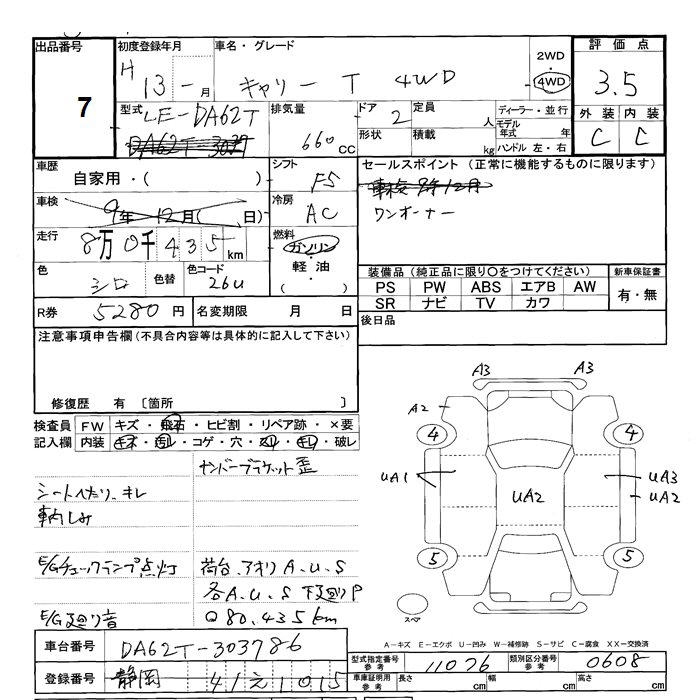 出品番号 初度登録年月 車名・グレード 2WD ・ 4WD 評価点
7 H 13 - 月 キャリー T 4WD 3.5
型式 LE-DA62T 排気量 660 CC ドア 2 定員 人 ディーラー・並行 外装 内装
形状 積載 kg モデル年式 年 C C
ハンドル 左・右
車歴 自家用・( ) シフト F5 セールスポイント (正常に機能するものに限ります)
車検 9年 12月( 日) 冷房 AC 車検 9年12月
ワンオーナー
走行 8万0千435km 燃料 ガソリン・軽油・( )
色 シロ 色替 色コード 26U
装備品 (純正品に限り○をつけてください) 新車保証書
PS PW ABS エアB AW 有・無
SR ナビ TV カワ
R券 5280 円 名変期限 月 日 後日品
注意事項申告欄(不具合内容等は具体的に記入して下さい)
修復歴 有 〔箇所 〕
検査員 FW キズ・飛石・ヒビ割・リペア跡・×要
記入欄 内装 キズ・汚レ・コゲ・穴・スレ・キレ・破レ
サンバーブラケット歪
シートへたり、キレ
車内しみ
E/Gチェックランプ点灯 荷台、アオリ A.U.S
各A.U.S 下廻りP
E/G廻り音 80,435km
A3 A3
A2
4 4
UA1 UA2 UA3
UA2
5 5
スペア
A-キズ E-エクボ U-凹み W-補修跡 S-サビ C-腐食 XX-交換済
車台番号 DA62T-303786
型式指定番号 参考 11076 類別区分番号 参考 0608
登録番号 静岡 41 え 1015
車庫証明用 参考 長さ cm 幅 cm 高さ cm